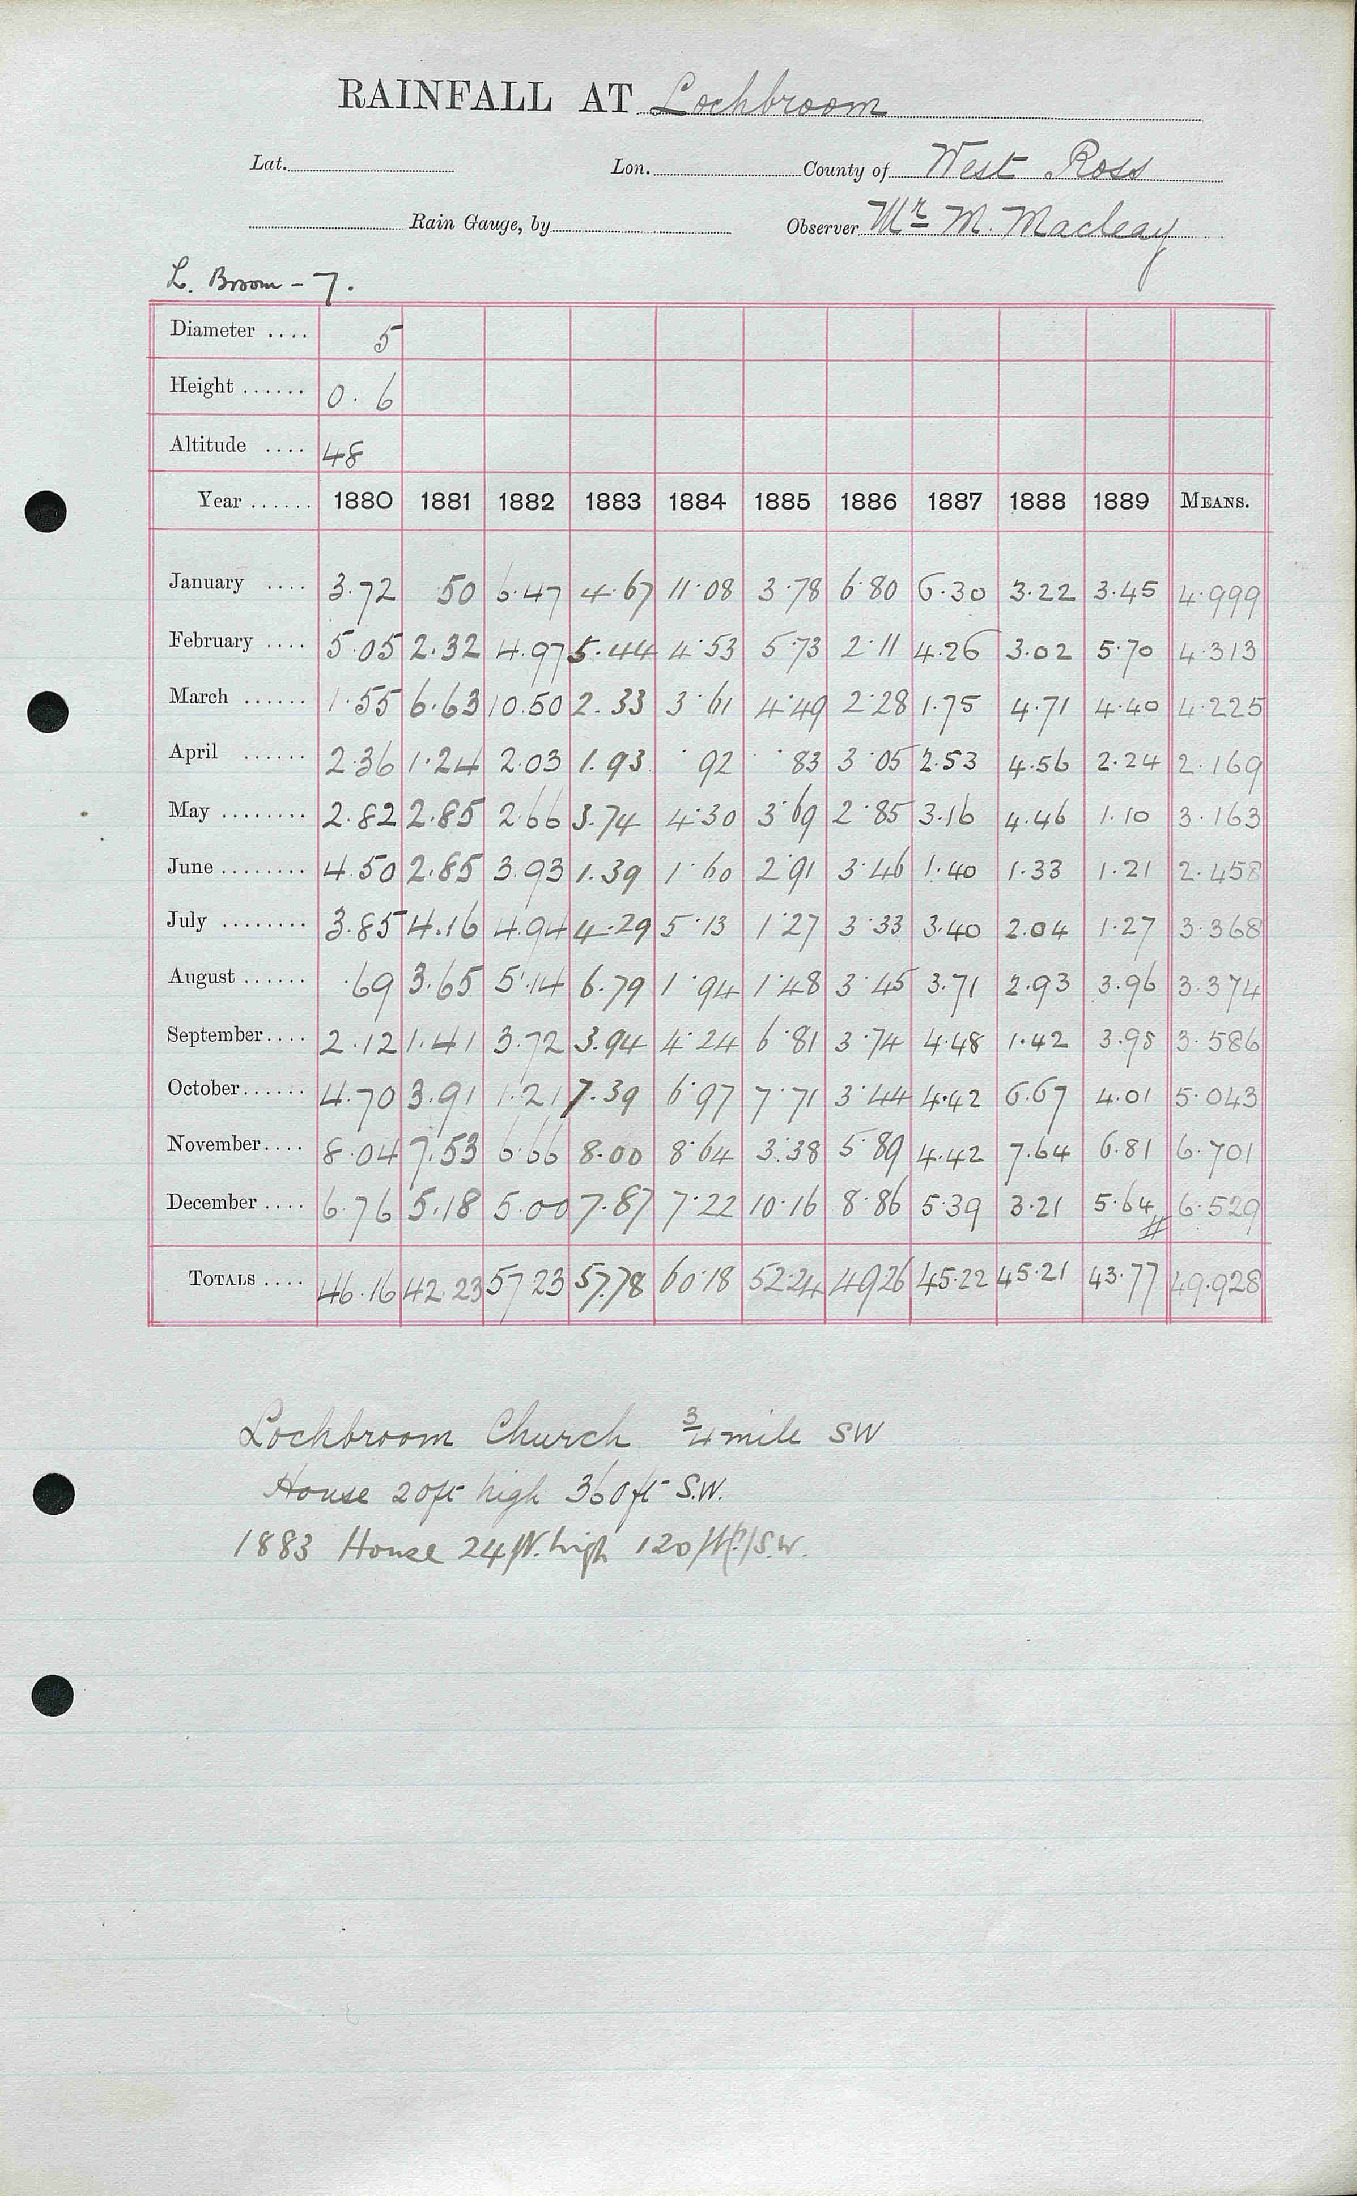 RAINFALL AT Lochbroom
Lat. Lon. County of West Ross
Rain Gauge, by Observer Mr M. Macleay
L. Broom - 7.
Diameter .... 5
Height ...... 0. 6
Altitude .... 48
Year ...... 1880 1881 1882 1883 1884 1885 1886 1887 1888 1889 MEANS.
January .... 3.72 .50 6.47 4.67 11.08 3.78 6.80 6.30 3.22 3.45 4.999
February .... 5.05 2.32 4.97 5.44 4.53 5.73 2.11 4.26 3.02 5.70 4.313
March ...... 1.55 6.63 10.50 2.33 3.61 4.49 2.28 1.75 4.71 4.40 4.225
April ...... 2.36 1.24 2.03 1.93 .92 .83 3.05 2.53 4.56 2.24 2.169
May ........ 2.82 2.85 2.66 3.74 4.30 3.69 2.85 3.16 4.46 1.10 3.163
June ........ 4.50 2.85 3.93 1.39 1.60 2.91 3.46 1.40 1.33 1.21 2.458
July ........ 3.85 4.16 4.94 4.29 5.13 1.27 3.33 3.40 2.04 1.27 3.368
August ...... .69 3.65 5.14 6.79 1.94 1.48 3.45 3.71 2.93 3.96 3.374
September.... 2.12 1.41 3.72 3.94 4.24 6.81 3.74 4.48 1.42 3.98 3.586
October...... 4.70 3.91 1.21 7.39 6.97 7.71 3.44 4.42 6.67 4.01 5.043
November.... 8.04 7.53 6.66 8.00 8.64 3.38 5.89 4.42 7.64 6.81 6.701
December .... 6.76 5.18 5.00 7.87 7.22 10.16 8.86 5.39 3.21 5.64 6.529
TOTALS .... 46.16 42.23 57.23 57.78 60.18 52.24 49.26 45.22 45.21 43.77 49.928
Lochbroom Church 3/4 mile SW
House 20ft high 360ft S.W.
1883 House 24ft. high 120ft S.W.